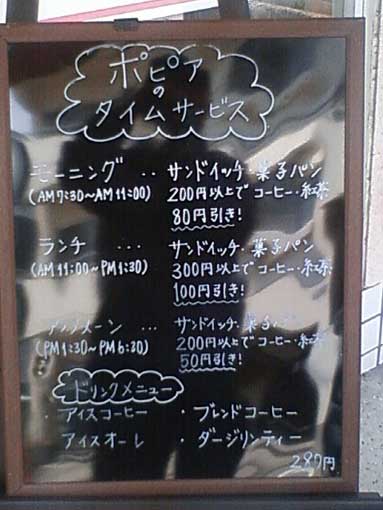 ポピア
の
タイムサービス
モーニング ‥ サンドイッチ・菓子パン
(AM7:30～AM11:00) 200円以上でコーヒー・紅茶
80円引き!
ランチ … サンドイッチ・菓子パン
(AM11:00～PM1:30) 300円以上でコーヒー・紅茶
100円引き!
… サンドイッチ・菓子パン
(PM1:30～PM6:30) 200円以上でコーヒー・紅茶
50円引き!
ドリンクメニュー
・アイスコーヒー ・ブレンドコーヒー
アイスオーレ ・ダージリンティー
287円